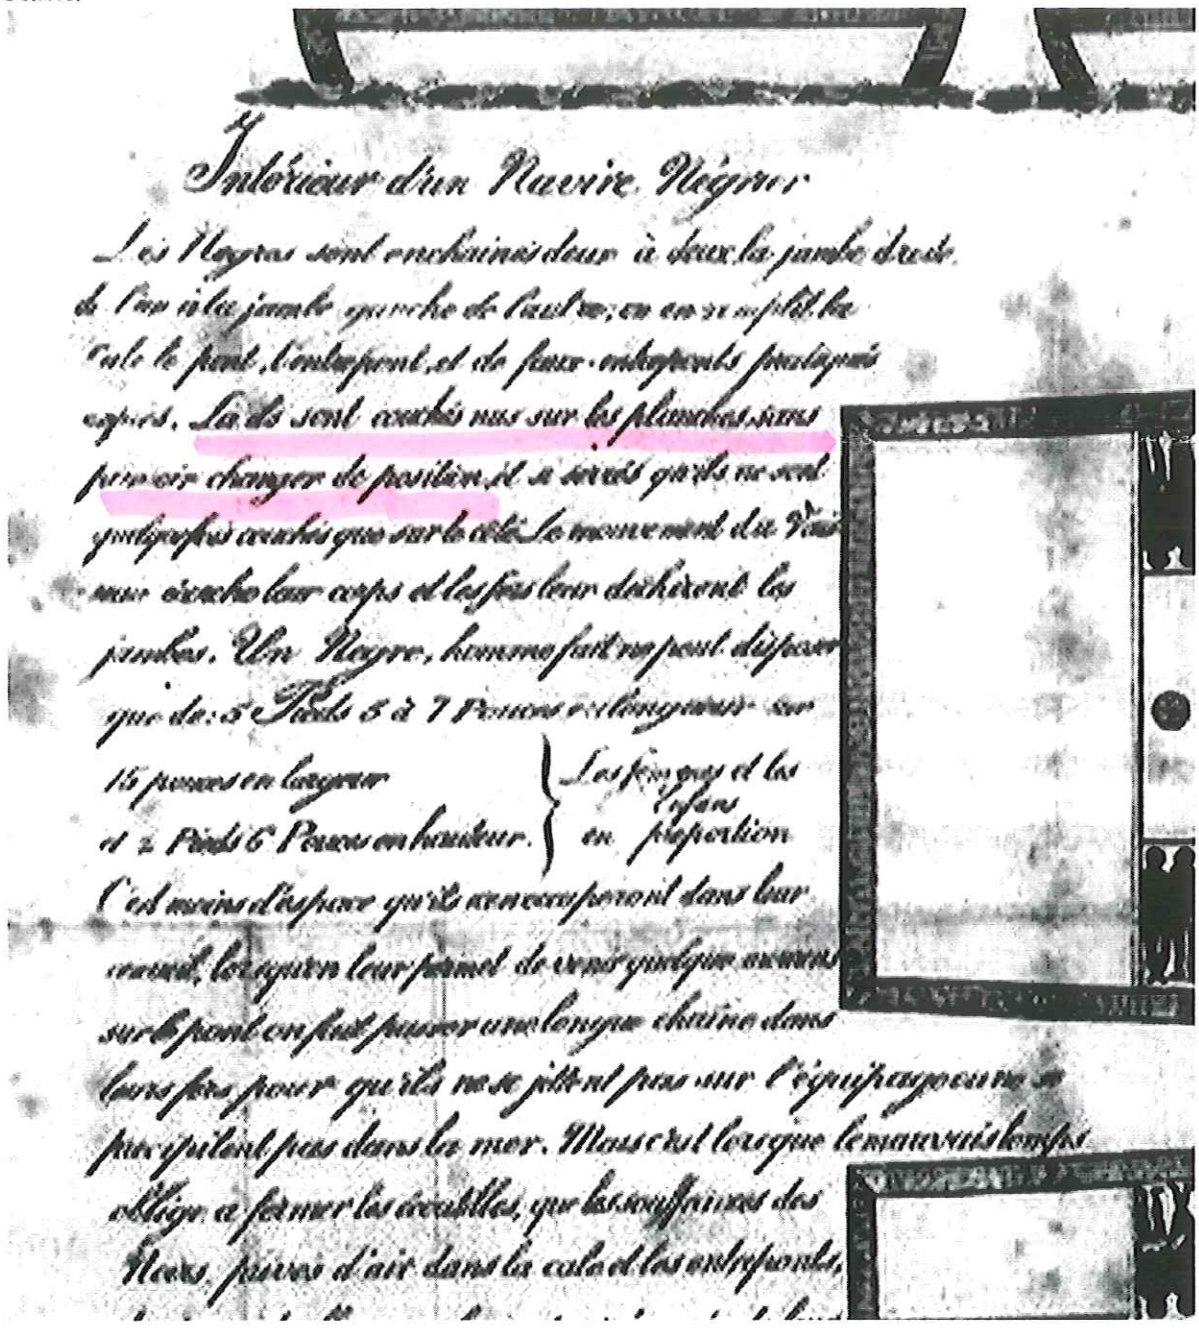 Intérieur d'un Navire Négrier
Les Negres sont enchainés deux à deux, la jambe droite
de l'un à la jambe gauche de l'autre; on en remplit la
cale le pont, l'entrepont, et de faux-entreponts pratiqués
exprès. Là ils sont couchés nus sur les planches, sans
pouvoir changer de position, et si serrés qu'ils ne sont
quelquefois couchés que sur le côté. Le mouvement du Vais
seau écorche leur corps et les fers leur déchirent les
jambes. Un Negre, homme fait ne peut disposer
que de: 5 Pieds 5 à 7 Pouces en longueur sur
15 pouces en largeur
et 2 Pieds 6 Pouces en hauteur.
Les femmes et les
Enfans
en proportion
C'est moins d'espace qu'ils n'en occuperont dans leur
cercueil, lorsqu'on leur permet de venir quelque momens
sur le pont on fait passer une longue chaîne dans
leurs fers pour qu'ils ne se jettent pas sur l'équipage ou ne se
precipitent pas dans la mer. Mais c'est lorsque le mauvais temps
oblige a fermer les écoutilles, que les souffrances des
Noirs, privés d'air dans la cale et les entreponts,